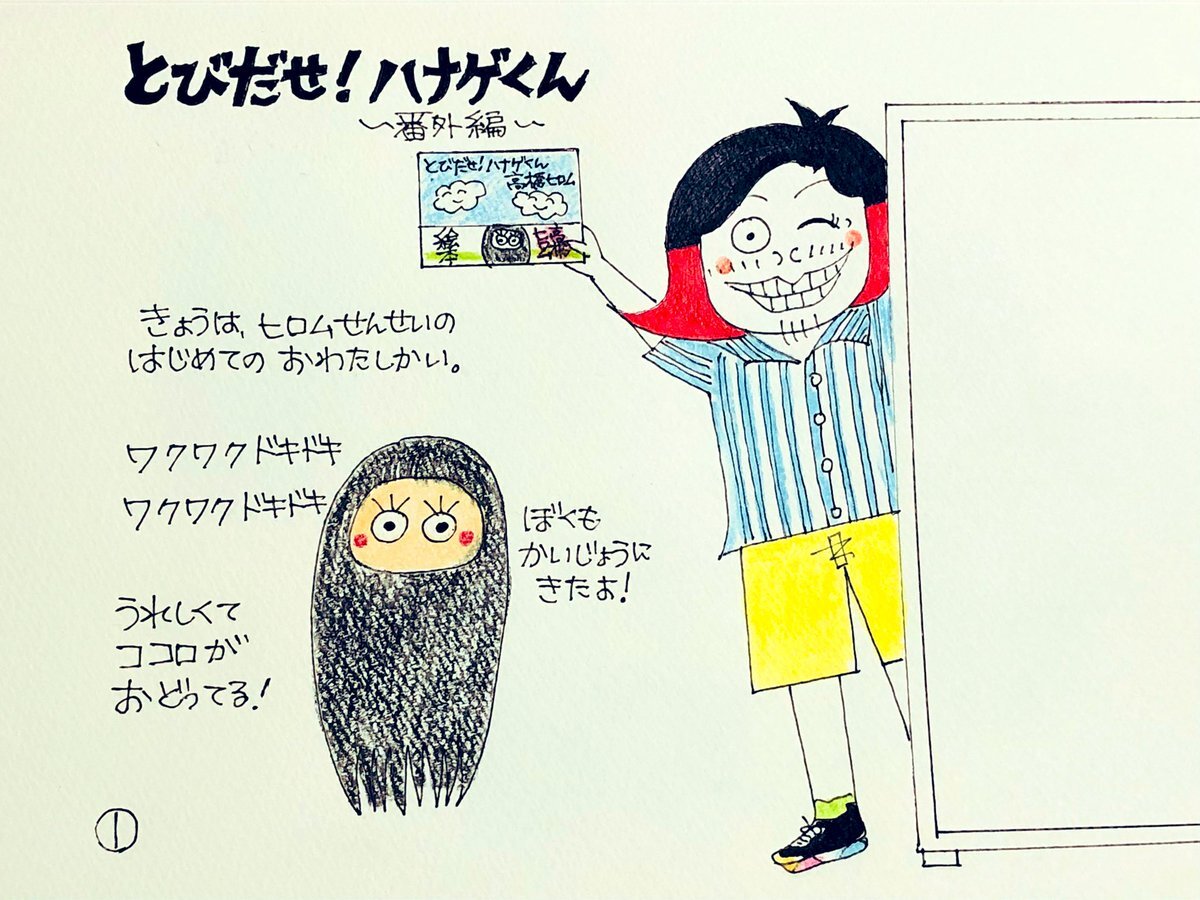 とびだせ!ハナゲくん
〜番外編〜
とびだせ!ハナゲくん
高橋ヒロム
絵本
きょうは、ヒロムせんせいの
はじめての おわたしかい。
ワクワクドキドキ
ワクワクドキドキ
ぼくも
かいじょうに
きたよ!
うれしくて
ココロが
おどってる!
①